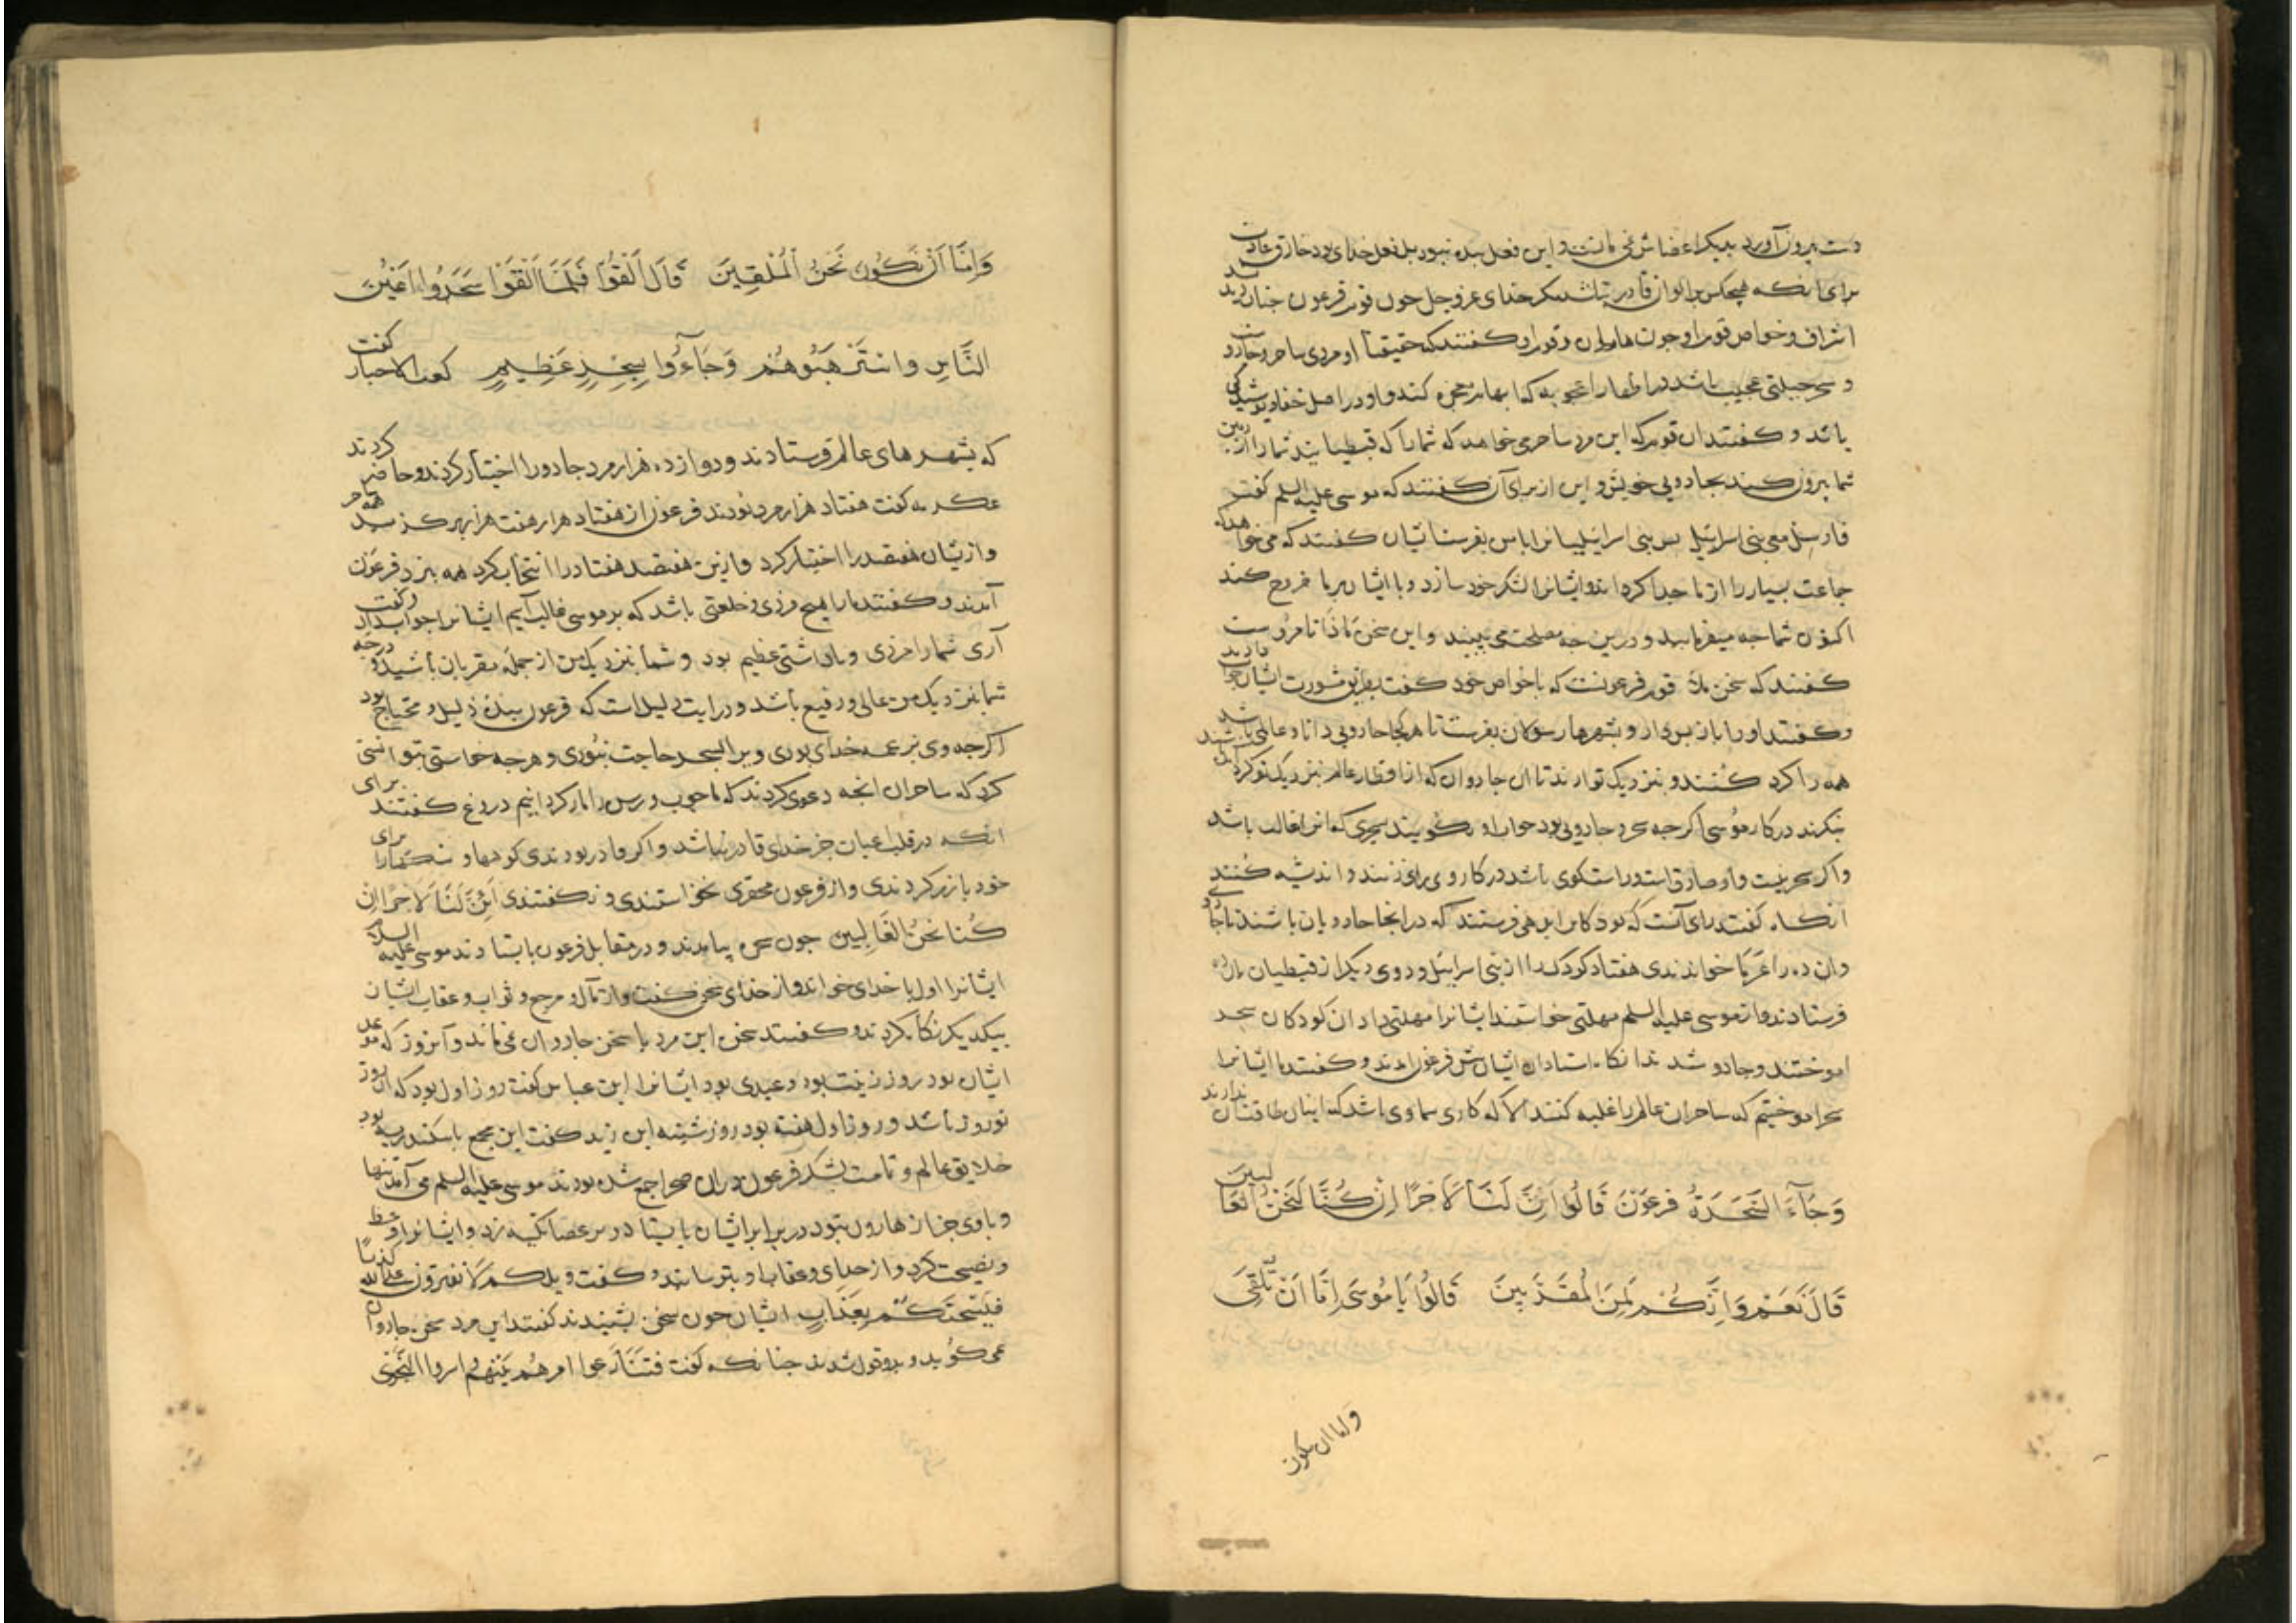 دست بیرون آورد بدیگر اعضاش نمی مانست و این فعل بنده نبود بل فعل خدای بود خارق عادت
برای انکه هیچکس بر الوان قادر نباشد مگر خدای عزوجل جون قوم فرعون جنان دیدند
اشراف و خواص قوم او جون هامان و قوم او کفتند که حقیقتا او مردی ساحر و جادوست
و سحر حیلتی عجیب باشد در اظهار اعجوبه که ابهام معجزه کند و او در اصل خفا و پوشیدگی
باشد و کفتند ان قوم که این مرد ساحر می خواهد که شما را که قبطیانید شما را از زمین
شما بیرون کند بجادویی خویش و این از برای آن کفتند که موسی علیه السلم کفت
فارسل معی بنی اسرائیل بس بنی اسرائیلیانرا با من بفرست اینان کفتند که می خواهد که
جماعت بسیار را از ما جدا کرداند و ایشانرا لشکر خود سازد و با ایشان بر ما خروج کند
اکنون شما جه میفرمایید و درین جه مصلحت می بینید و این سخن فماذا تامرون است
کفتند که سخن ملا قوم فرعونست که با خواص خود کفت بطریق مشورت ایشان جواب دادند
و کفتند او را باز بس دار و بشهرها رسولان بفرست تا هر کجا جادویی دانا و عالم باشد
همه را کرد کنند و بنزدیک تو ارند تا ان جادوان که از اقطار عالم بنزدیک تو کرد آیند
بنکرند در کار موسی اکر جه سحر و جادویی بود جواب او بکویند بسحری که انرا غالب باشد
و اکر سحر نیست و او صادق است و راستکوی باشد در کار وی رای زنند و اندیشه کنند
آنکاه کفتند رای آنست که کودکانرا بدهی فرستند که در انجا جادویان باشند تا جادویی
وان ده را غرما خواندندی هفتاد کودک را از بنی اسرایل و دوی دیکر از قبطیان بان ده
فرستادند و از موسی علیه السلم مهلتی خواستند ایشانرا مهلتی داد ان کودکان سحر
اموختند و جادو شدند انکاه استادان ایشان بیش فرعون امدند و کفتند ما ایشانرا
سحر اموختیم که ساحران عالم را غلبه کنند الا که کاری سماوی باشد که اینان طاقت آن ندارند
وَجَآءَ السَّحَرَةُ فِرْعَوْنَ قَالُوا اَئِنَّ لَنَا لَاَجْرًا اِنْ كُنَّا نَحْنُ الْغَالِبِينَ
قَالَ نَعَمْ وَاِنَّكُمْ لَمِنَ الْمُقَرَّبِينَ قَالُوا يَا مُوسَى اِمَّا اَنْ تُلْقِىَ
واما ان نكون
وَاِمَّا اَنْ نَكُونَ نَحْنُ الْمُلْقِينَ قَالَ اَلْقُوْا فَلَمَّا اَلْقَوْا سَحَرُوا اَعْيُنَ
النَّاسِ وَاسْتَرْهَبُوهُمْ وَجَآءُوا بِسِحْرٍ عَظِيمٍ کعب الاحبار کفت
که بشهرهای عالم فرستادند و دوازده هزار مرد جادو را اختیار کردند و حاضر کردند
عکرمه کفت هفتاد هزار مرد بودند فرعون از هفتاد هزار هفت هزار برکزید همه ساحر
و ازیشان هفتصد را اختیار کرد و ازین هفتصد هفتاد را انتخاب کرد همه بنزد فرعون
آمدند و کفتند ما را هیچ مزدی و خلعتی باشد که بر موسی غالب آیم ایشانرا جواب داد و کفت
آری شما را مزدی و باداشتی عظیم بود و شما بنزدیک من از جمله مقربان باشید و درجه
شما بنزدیک من عالی و رفیع باشد و در ایت دلیل است که فرعون بنده ذلیل و محتاج بود
اکر جه وی بزعمه خدای بودی ویرا بسحر حاجت نبودی و هر جه خواستی بتوانستی
کرد که ساحران انجه دعوی کردند که ما جوب و رسن را مار کردانیم دروغ کفتند برای
انکه در قلب اعیان جز خدای قادر نباشد و اکر قادر بودندی کوهها و سنکها را برای
خود با زر کردندی و از فرعون محقری نخواستندی و نکفتندی اَئِنَّ لَنَا لَاَجْرًا اِنْ
كُنَّا نَحْنُ الْغَالِبِين جون سحره بیامدند و در مقابل فرعون بایستادند موسی علیه السلام
ایشانرا اول با خدای خواند و از خدای سخن کفت و از مآل و مرجع و ثواب و عقاب ایشان
بیکدیکر نکاه کردند و کفتند سخن این مرد با سخن جادوان نمی ماند و آنروز که موعد
ایشان بود روز زینت بود و عیدی بود ایشانرا ابن عباس کفت روز اول بود که ان روز
نوروز باشد و روز اول هفته بود روز شنبه ابن زید کفت این مجمع باسکندریه بود
خلایق عالم و تمامت لشکر فرعون در ان صحرا جمع شده بودند موسی علیه السلم می آمد تنها
و با وی جز از هارون نبود در برابر ایشان بایستاد و بر عصا تکیه زد و ایشانرا وعظ
و نصیحت کرد و از خدای و عقاب او بترسانید و کفت ویلکم لا تفتروا علی الله کذبا
فَيُسْحِتَكُمْ بِعَذَابٍ ایشان جون سخن بشنیدند کفتند این مرد سخن جادوان
نمی کوید و بدو قول شدند جنانکه کفت فتنازعوا امرهم بینهم و اسروا النجوی